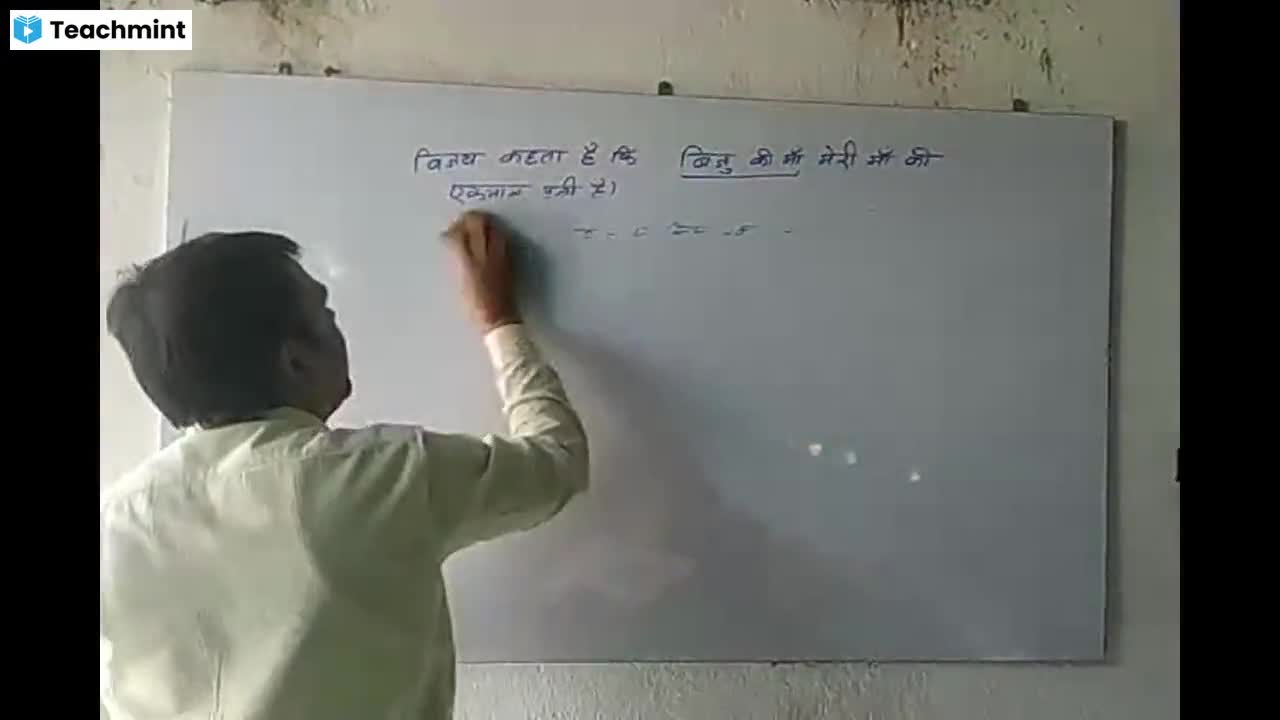 Teachmint
विनय कहता है कि बिनु की माँ मेरी माँ की
एकमात्र पुत्री है।